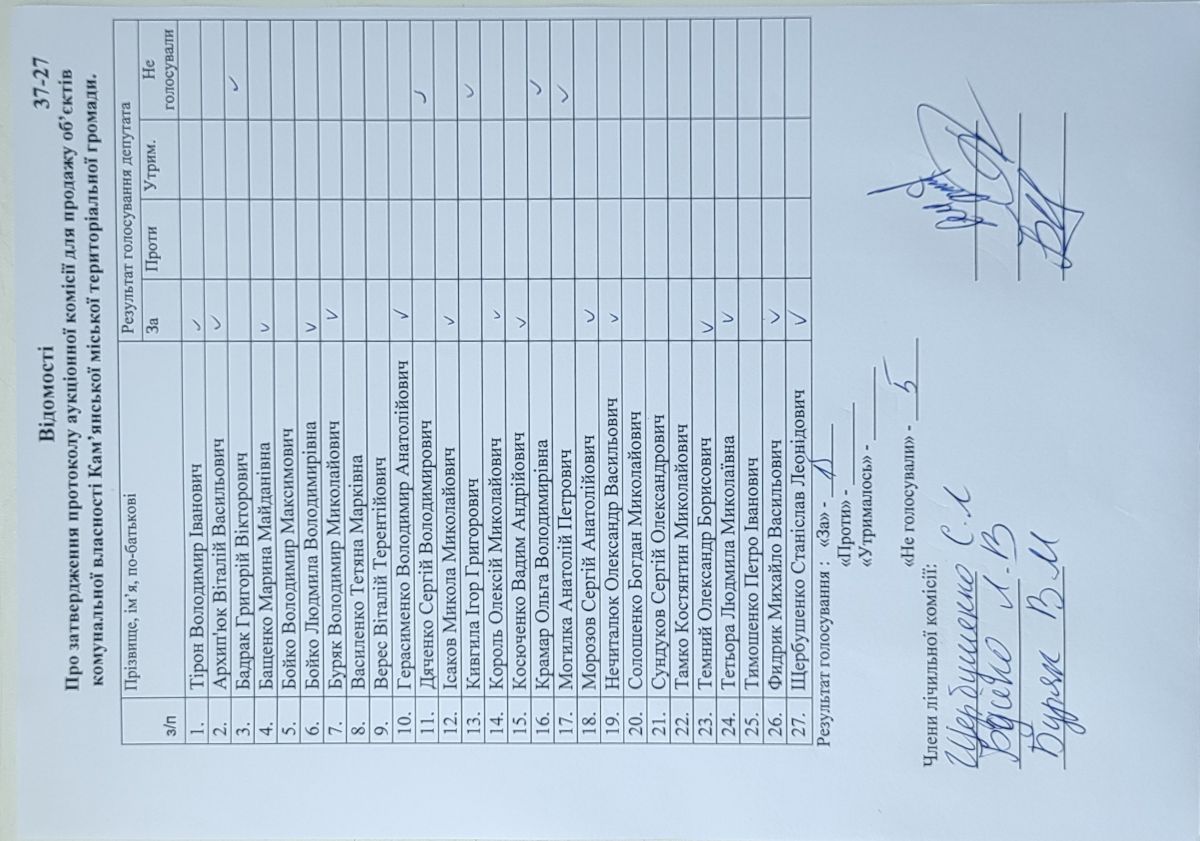 Відомості
37-27
Про затвердження протоколу аукціонної комісії для продажу об’єктів
комунальної власності Кам’янської міської територіальної громади.
з/п Прізвище, ім’я, по-батькові Результат голосування депутата
За Проти Утрим. Не голосували
1. Тірон Володимир Іванович ✓
2. Архип'юк Віталій Васильович ✓
3. Бадрак Григорій Вікторович ✓
4. Бащенко Марина Майданівна ✓
5. Бойко Володимир Максимович
6. Бойко Людмила Володимирівна ✓
7. Буряк Володимир Миколайович ✓
8. Василенко Тетяна Марківна
9. Верес Віталій Терентійович
10. Герасименко Володимир Анатолійович ✓
11. Дяченко Сергій Володимирович ✓
12. Ісаков Микола Миколайович ✓
13. Кивгила Ігор Григорович ✓
14. Король Олексій Миколайович ✓
15. Косюченко Вадим Андрійович ✓
16. Крамар Ольга Володимирівна ✓
17. Могилка Анатолій Петрович ✓
18. Морозов Сергій Анатолійович ✓
19. Нечиталюк Олександр Васильович ✓
20. Солошенко Богдан Миколайович
21. Сундуков Сергій Олександрович
22. Тамко Костянтин Миколайович
23. Темний Олександр Борисович ✓
24. Тетьора Людмила Миколаївна ✓
25. Тимошенко Петро Іванович
26. Фидрик Михайло Васильович ✓
27. Щербушенко Станіслав Леонідович ✓
Результат голосування : «За» - 15
«Проти» -
«Утрималось» -
«Не голосували» - 5
Члени лічильної комісії:
Щербушенко С.Л
Бойко Л.В
Буряк В М